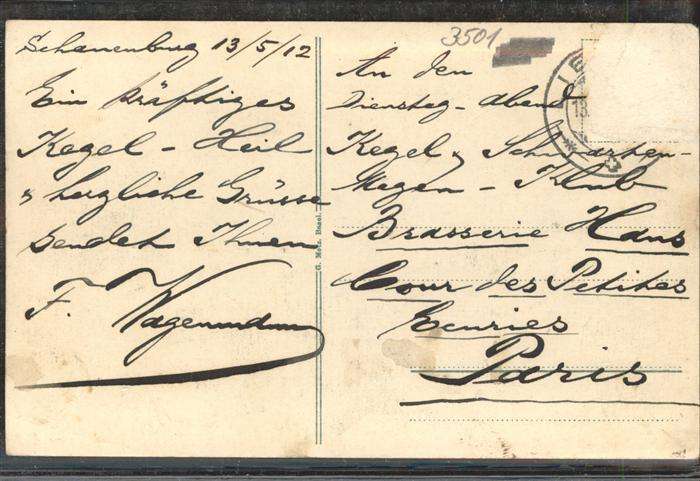 Schauenburg 13/5/12
Ein kräftiges
Kegel - Heil
& herzliche Grüsse
sendet Ihnen
F. Wagenmann
G. Metz, Basel.
3501
An den
Dienstag - Abend
Kegel & Schwarzen-
Magen - Klub
Brasserie Hans
Cour des Petites
Ecuries
Paris